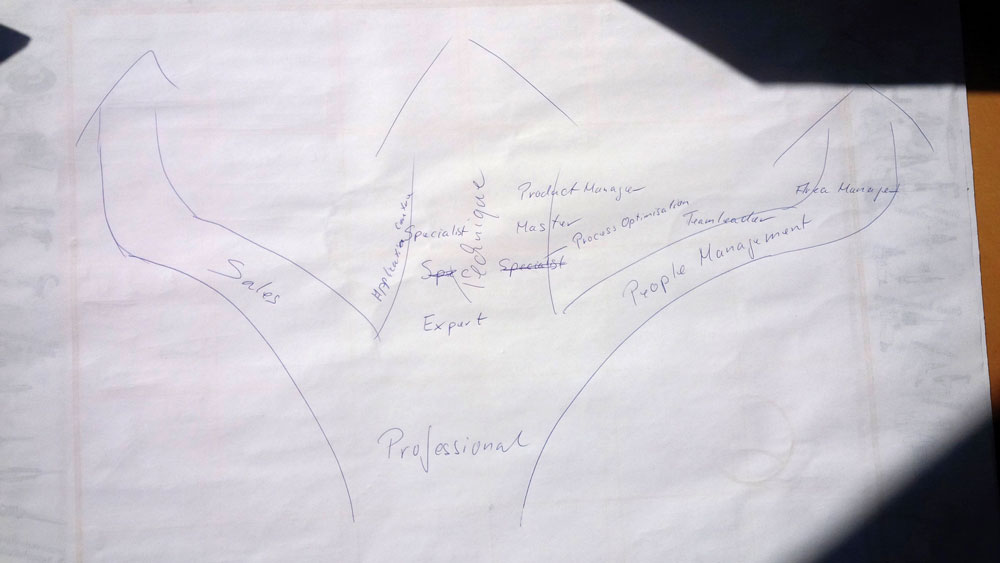 Product Manager
Area Manager
Specialist
Technique
Master
Process Optimisation
Teamleader
Sales
Application
Spec
Specialist
People Management
Expert
Professional